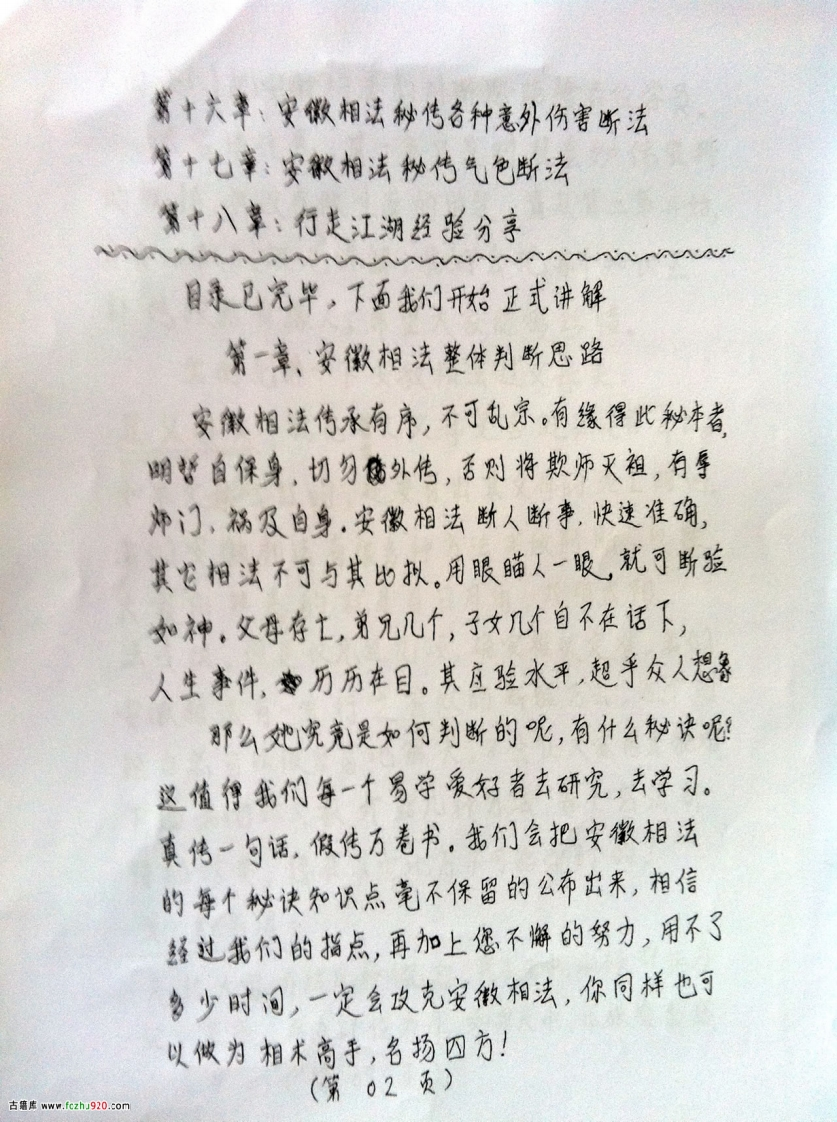 第十六章：安徽相法秘传各种意外伤害断法
第十七章：安徽相法秘传气色断法
第十八章：行走江湖经验分享
目录已完毕，下面我们开始正式讲解
第一章、安徽相法整体判断思路
安徽相法传承有序，不可乱宗。有缘得此秘本者，
明哲自保身，切勿外传，否则将欺师灭祖，有辱
师门，祸及自身。安徽相法断人断事，快速准确，
其它相法不可与其比拟。用眼瞄人一眼，就可断验
如神。父母存亡，弟兄几个，子女几个自不在话下，
人生事件，历历在目。其应验水平，超乎众人想象
那么她究竟是如何判断的呢，有什么秘诀呢？
这值得我们每一个易学爱好者去研究，去学习。
真传一句话，假传万卷书。我们会把安徽相法
的每个秘诀知识点毫不保留的公布出来，相信
经过我们的指点，再加上您不懈的努力，用不了
多少时间，一定会攻克安徽相法，你同样也可
以做为相术高手，名扬四方！
（第 02 页）
古籍库 www.fczhu920.com